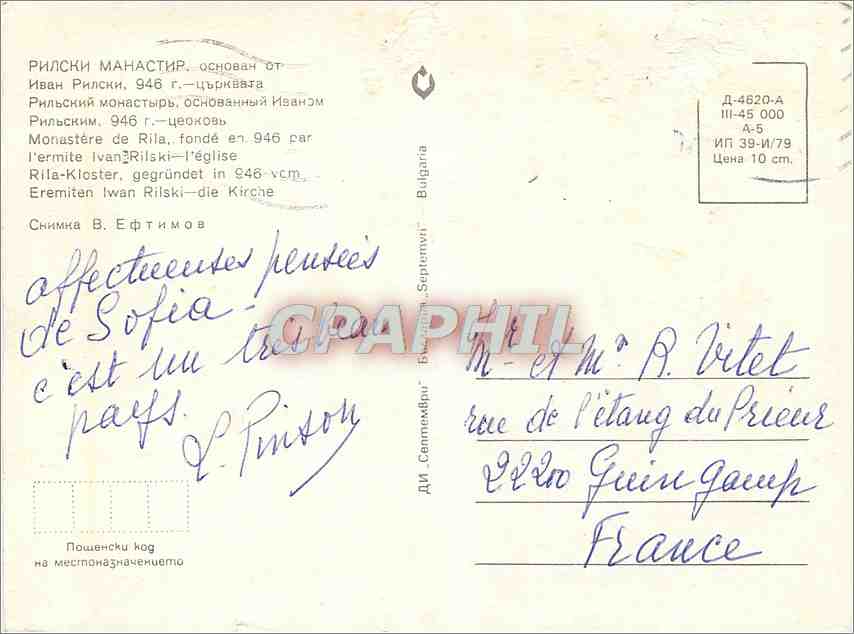 РИЛСКИ МАНАСТИР, основан от
Иван Рилски, 946 г.—църквата
Рильский монастырь, основанный Иваном
Рильским, 946 г.—церковь
Monastère de Rila, fondé en 946 par
l'ermite Ivan Rilski—l'église
Rila-Kloster, gegründet in 946 vom
Eremiten Iwan Rilski—die Kirche
Снимка В. Ефтимов
affectueuses pensées
de Sofia -
c'est un très beau
pays.
L. Pinson
Пощенски код
на местоназначението
ДИ „Септември" България „Septemvri" Bulgaria
CPAPHIL
Д-4620-А
III-45 000
А-5
ИП 39-И/79
Цена 10 ст.
Mr et Me R. Vitet
rue de l'étang du Prieur
22200 Guingamp
France